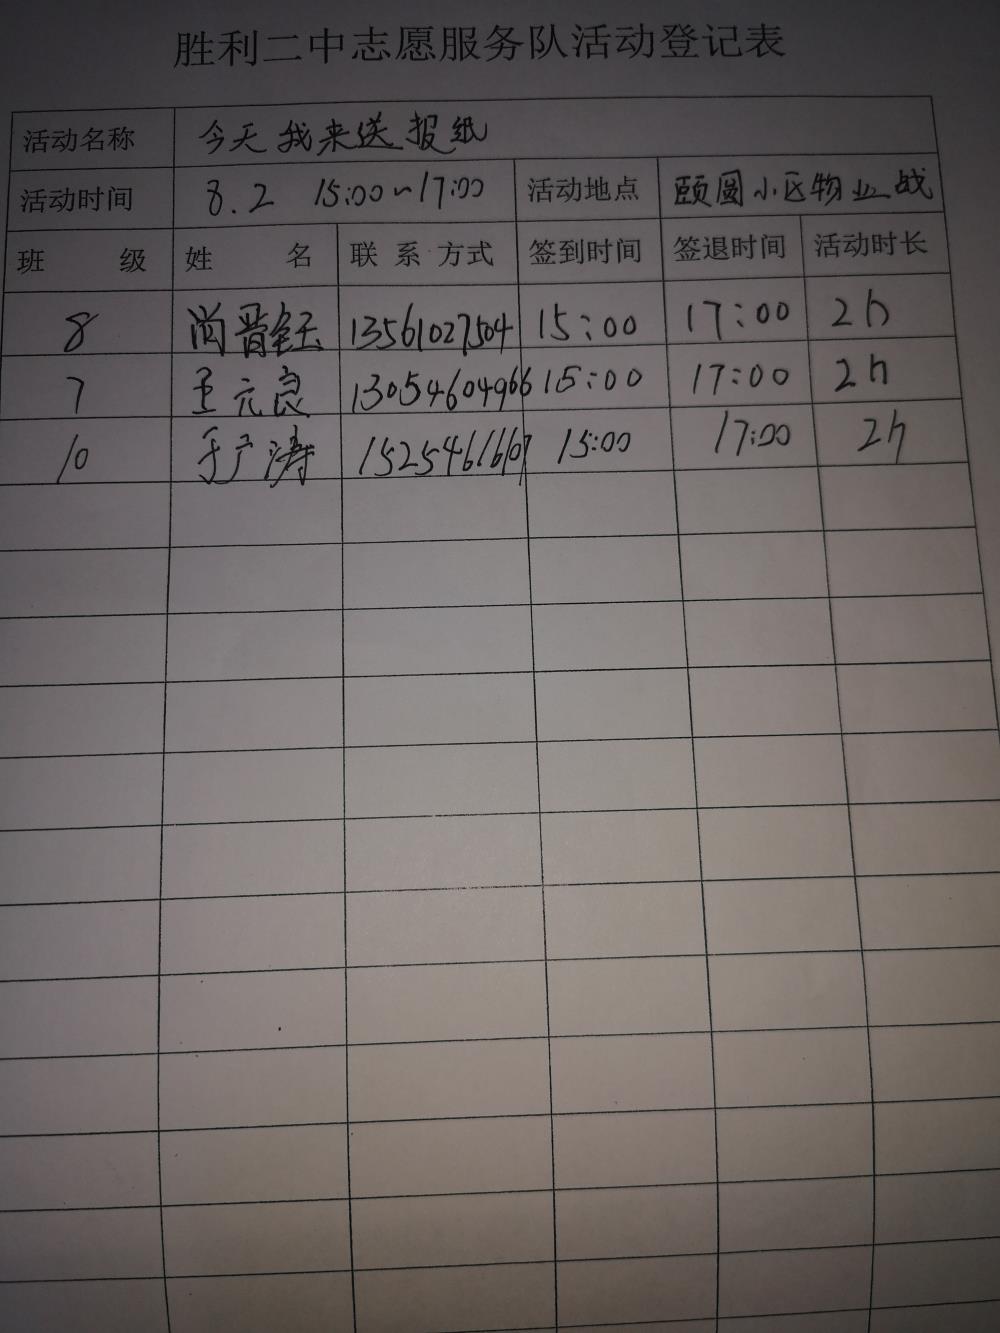 胜利二中志愿服务队活动登记表
活动名称 今天我来送报纸
活动时间 8.2 15:00~17:00 活动地点 颐园小区物业战
班 级 姓 名 联 系 方式 签到时间 签退时间 活动时长
8 尚晋钰 13561027504 15:00 17:00 2h
7 王元良 13054604966 15:00 17:00 2h
10 于广涛 15254616107 15:00 17:00 2h